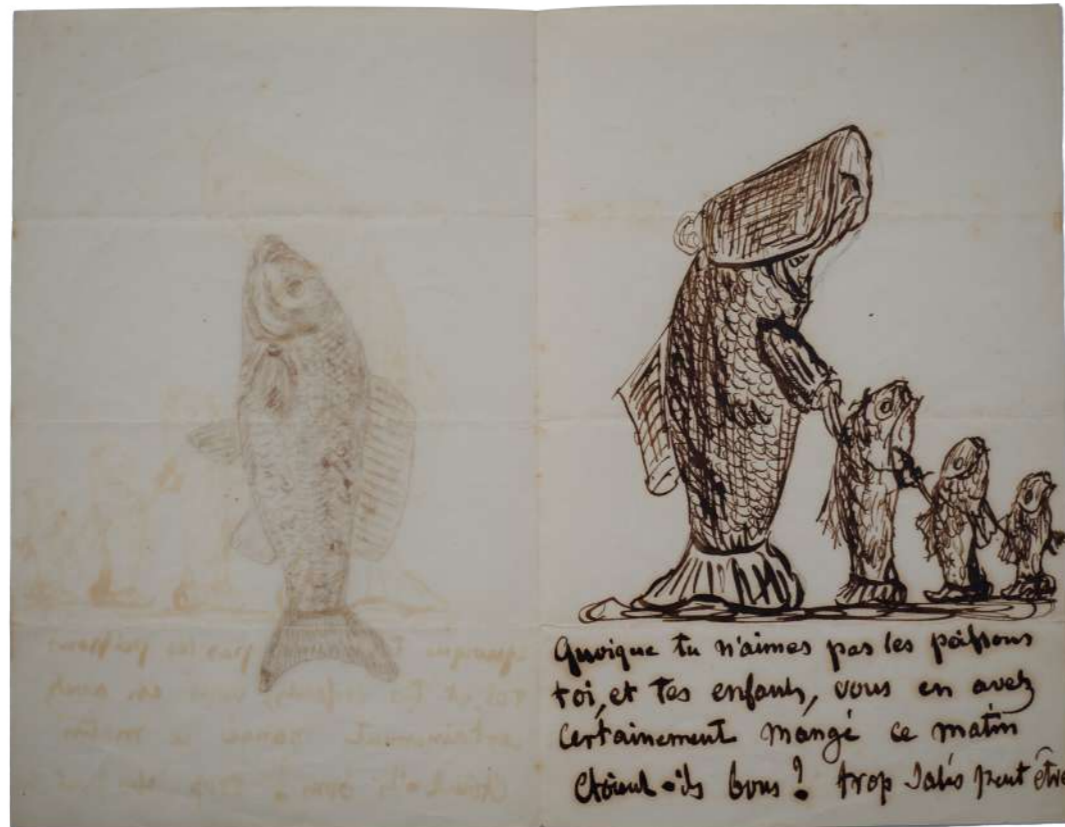 Quoique tu n'aimes pas les poissons
toi, et tes enfants, vous en avez
certainement mangé ce matin
étaient-ils bons ? trop salés peut être